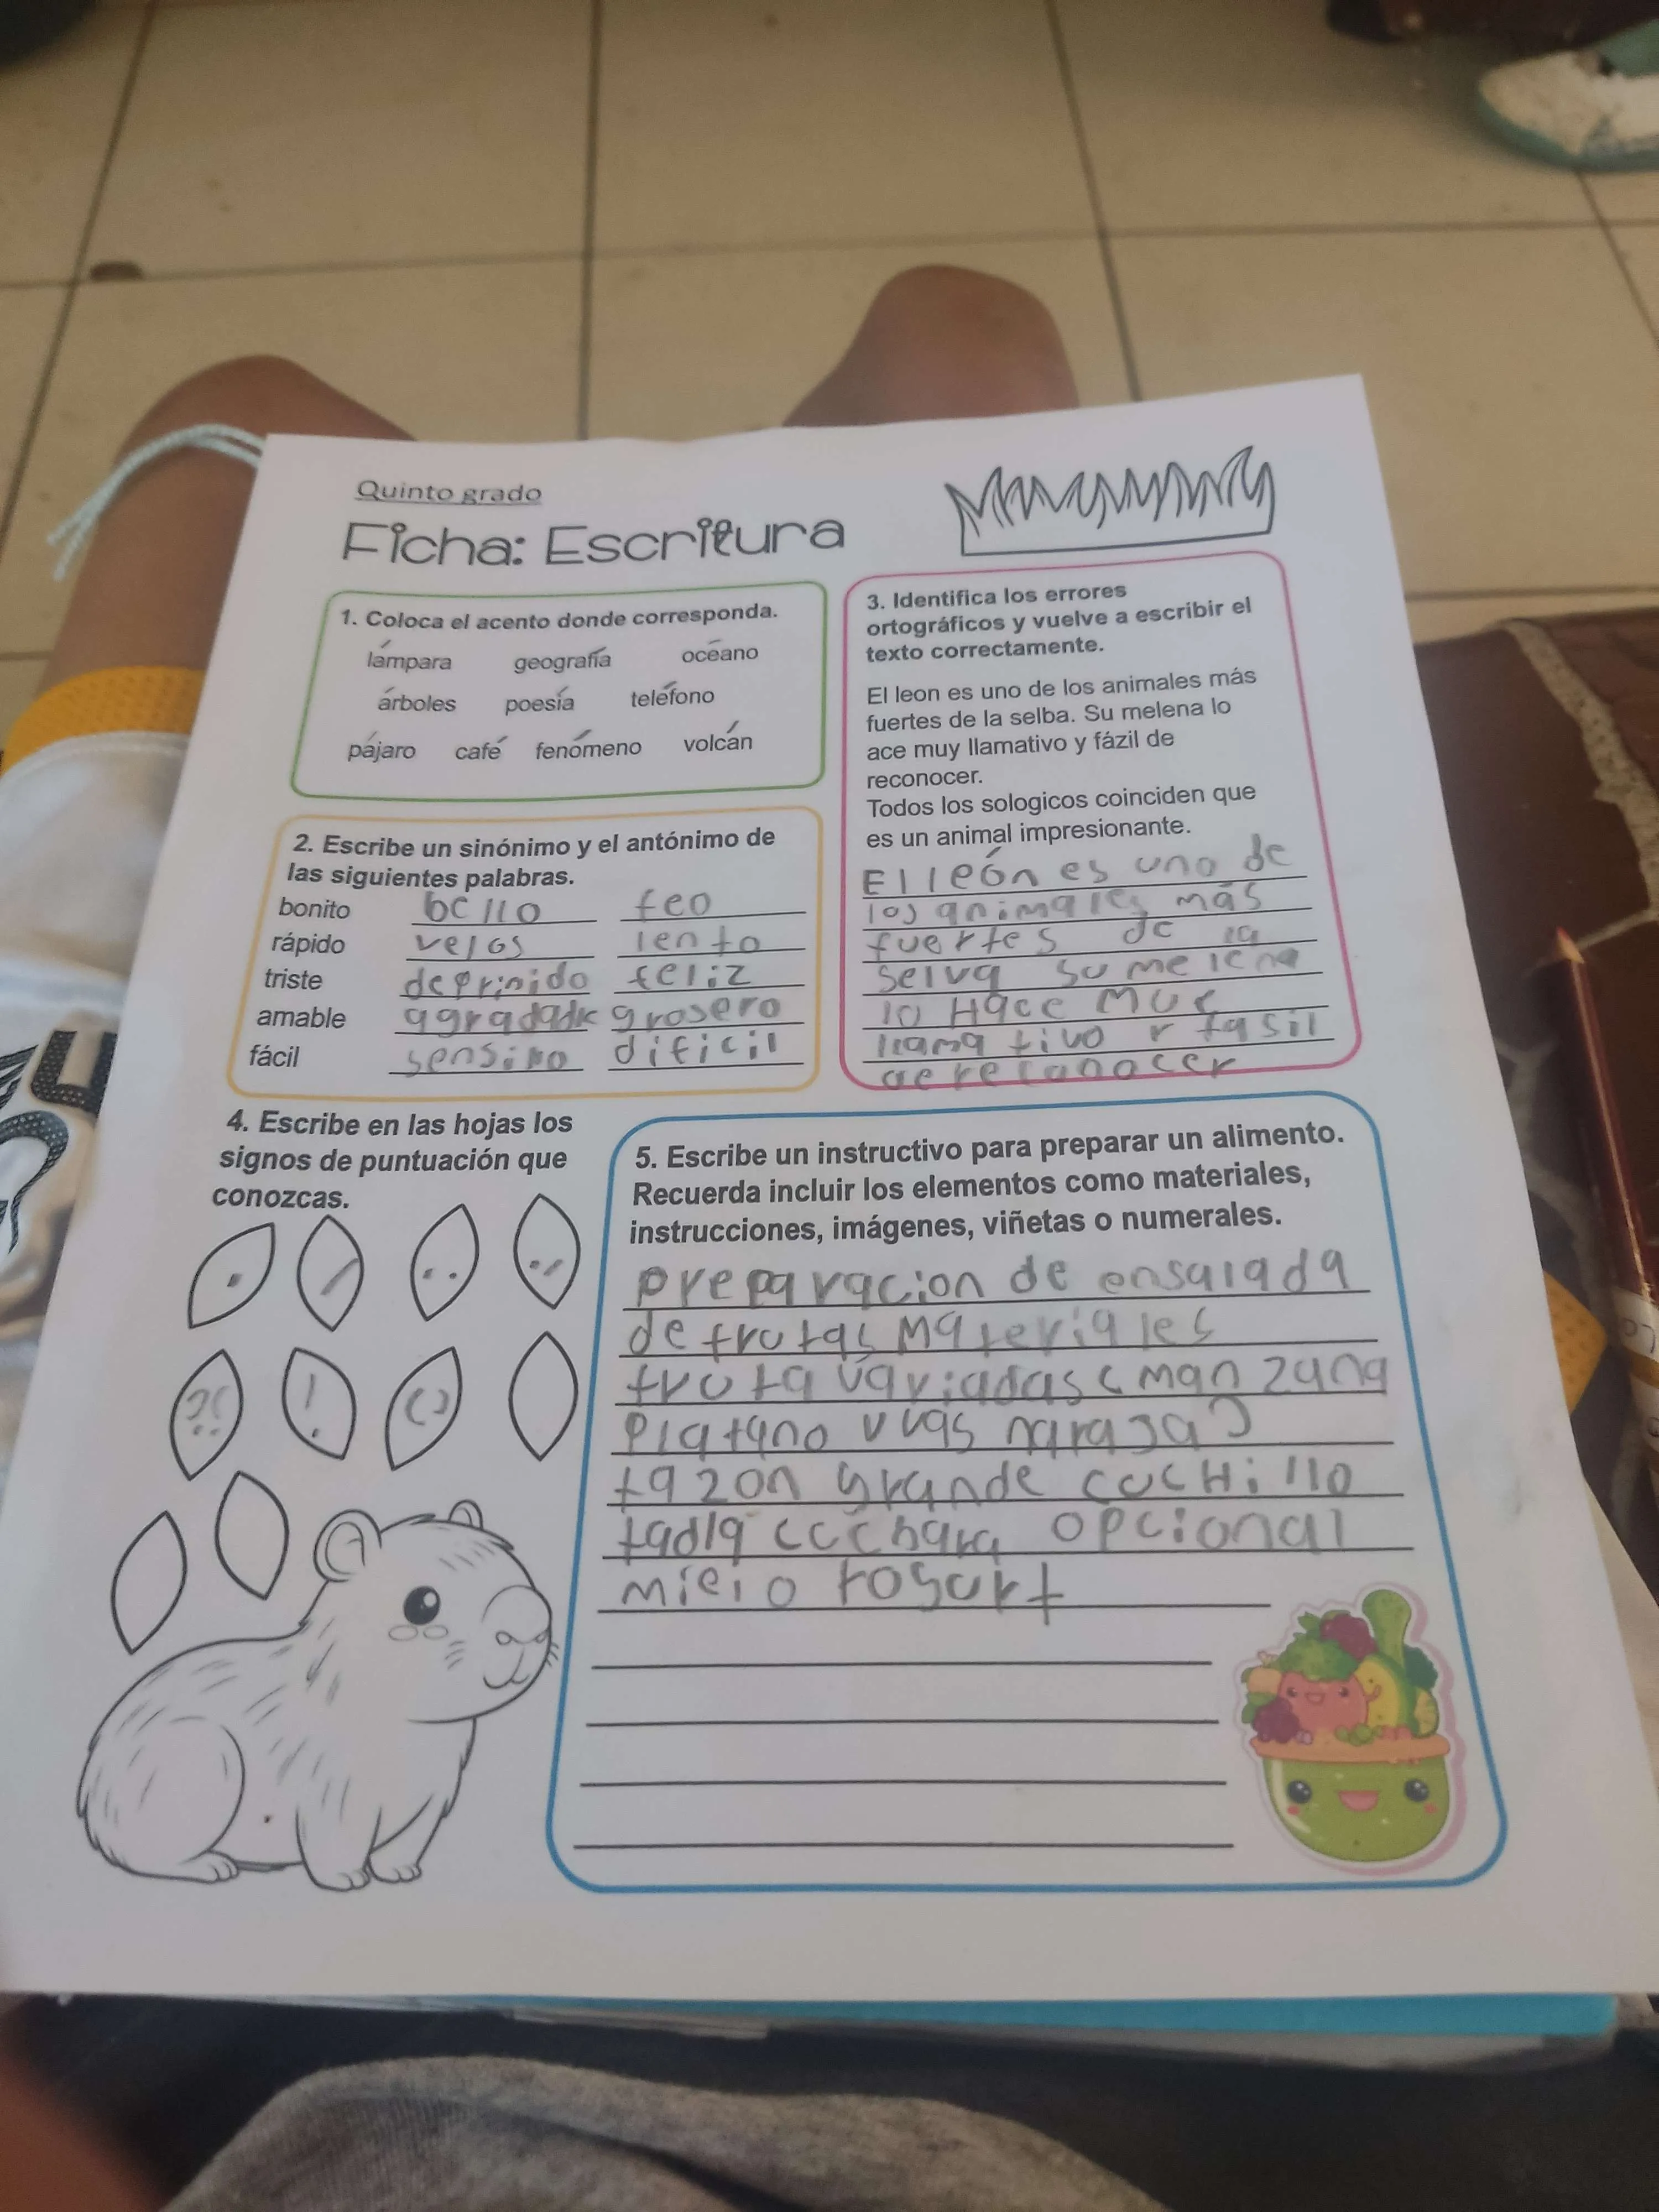 Quinto grado
Ficha: Escritura
1. Coloca el acento donde corresponda.
lámpara geografía océano
árboles poesía teléfono
pájaro café fenómeno volcán
2. Escribe un sinónimo y el antónimo de
las siguientes palabras.
bonito bello feo
rápido velos lento
triste deprimido feliz
amable agradable grosero
fácil sensiiio dificil
3. Identifica los errores
ortográficos y vuelve a escribir el
texto correctamente.
El leon es uno de los animales más
fuertes de la selba. Su melena lo
ace muy llamativo y fázil de
reconocer.
Todos los sologicos coinciden que
es un animal impresionante.
El león es uno de
los animales más
fuertes de la
selva su melena
lo Hace Muy
llama tivo y fasil
de reconocer
4. Escribe en las hojas los
signos de puntuación que
conozcas.
. / . . . /
?¿ ! ( )
5. Escribe un instructivo para preparar un alimento.
Recuerda incluir los elementos como materiales,
instrucciones, imágenes, viñetas o numerales.
preparacion de ensalada
de frutas Materiales
fruta variadas ( manzana
Platano uvas naraja )
tazon grande cucHillo
tadla cuchara opcional
miel o yogurt